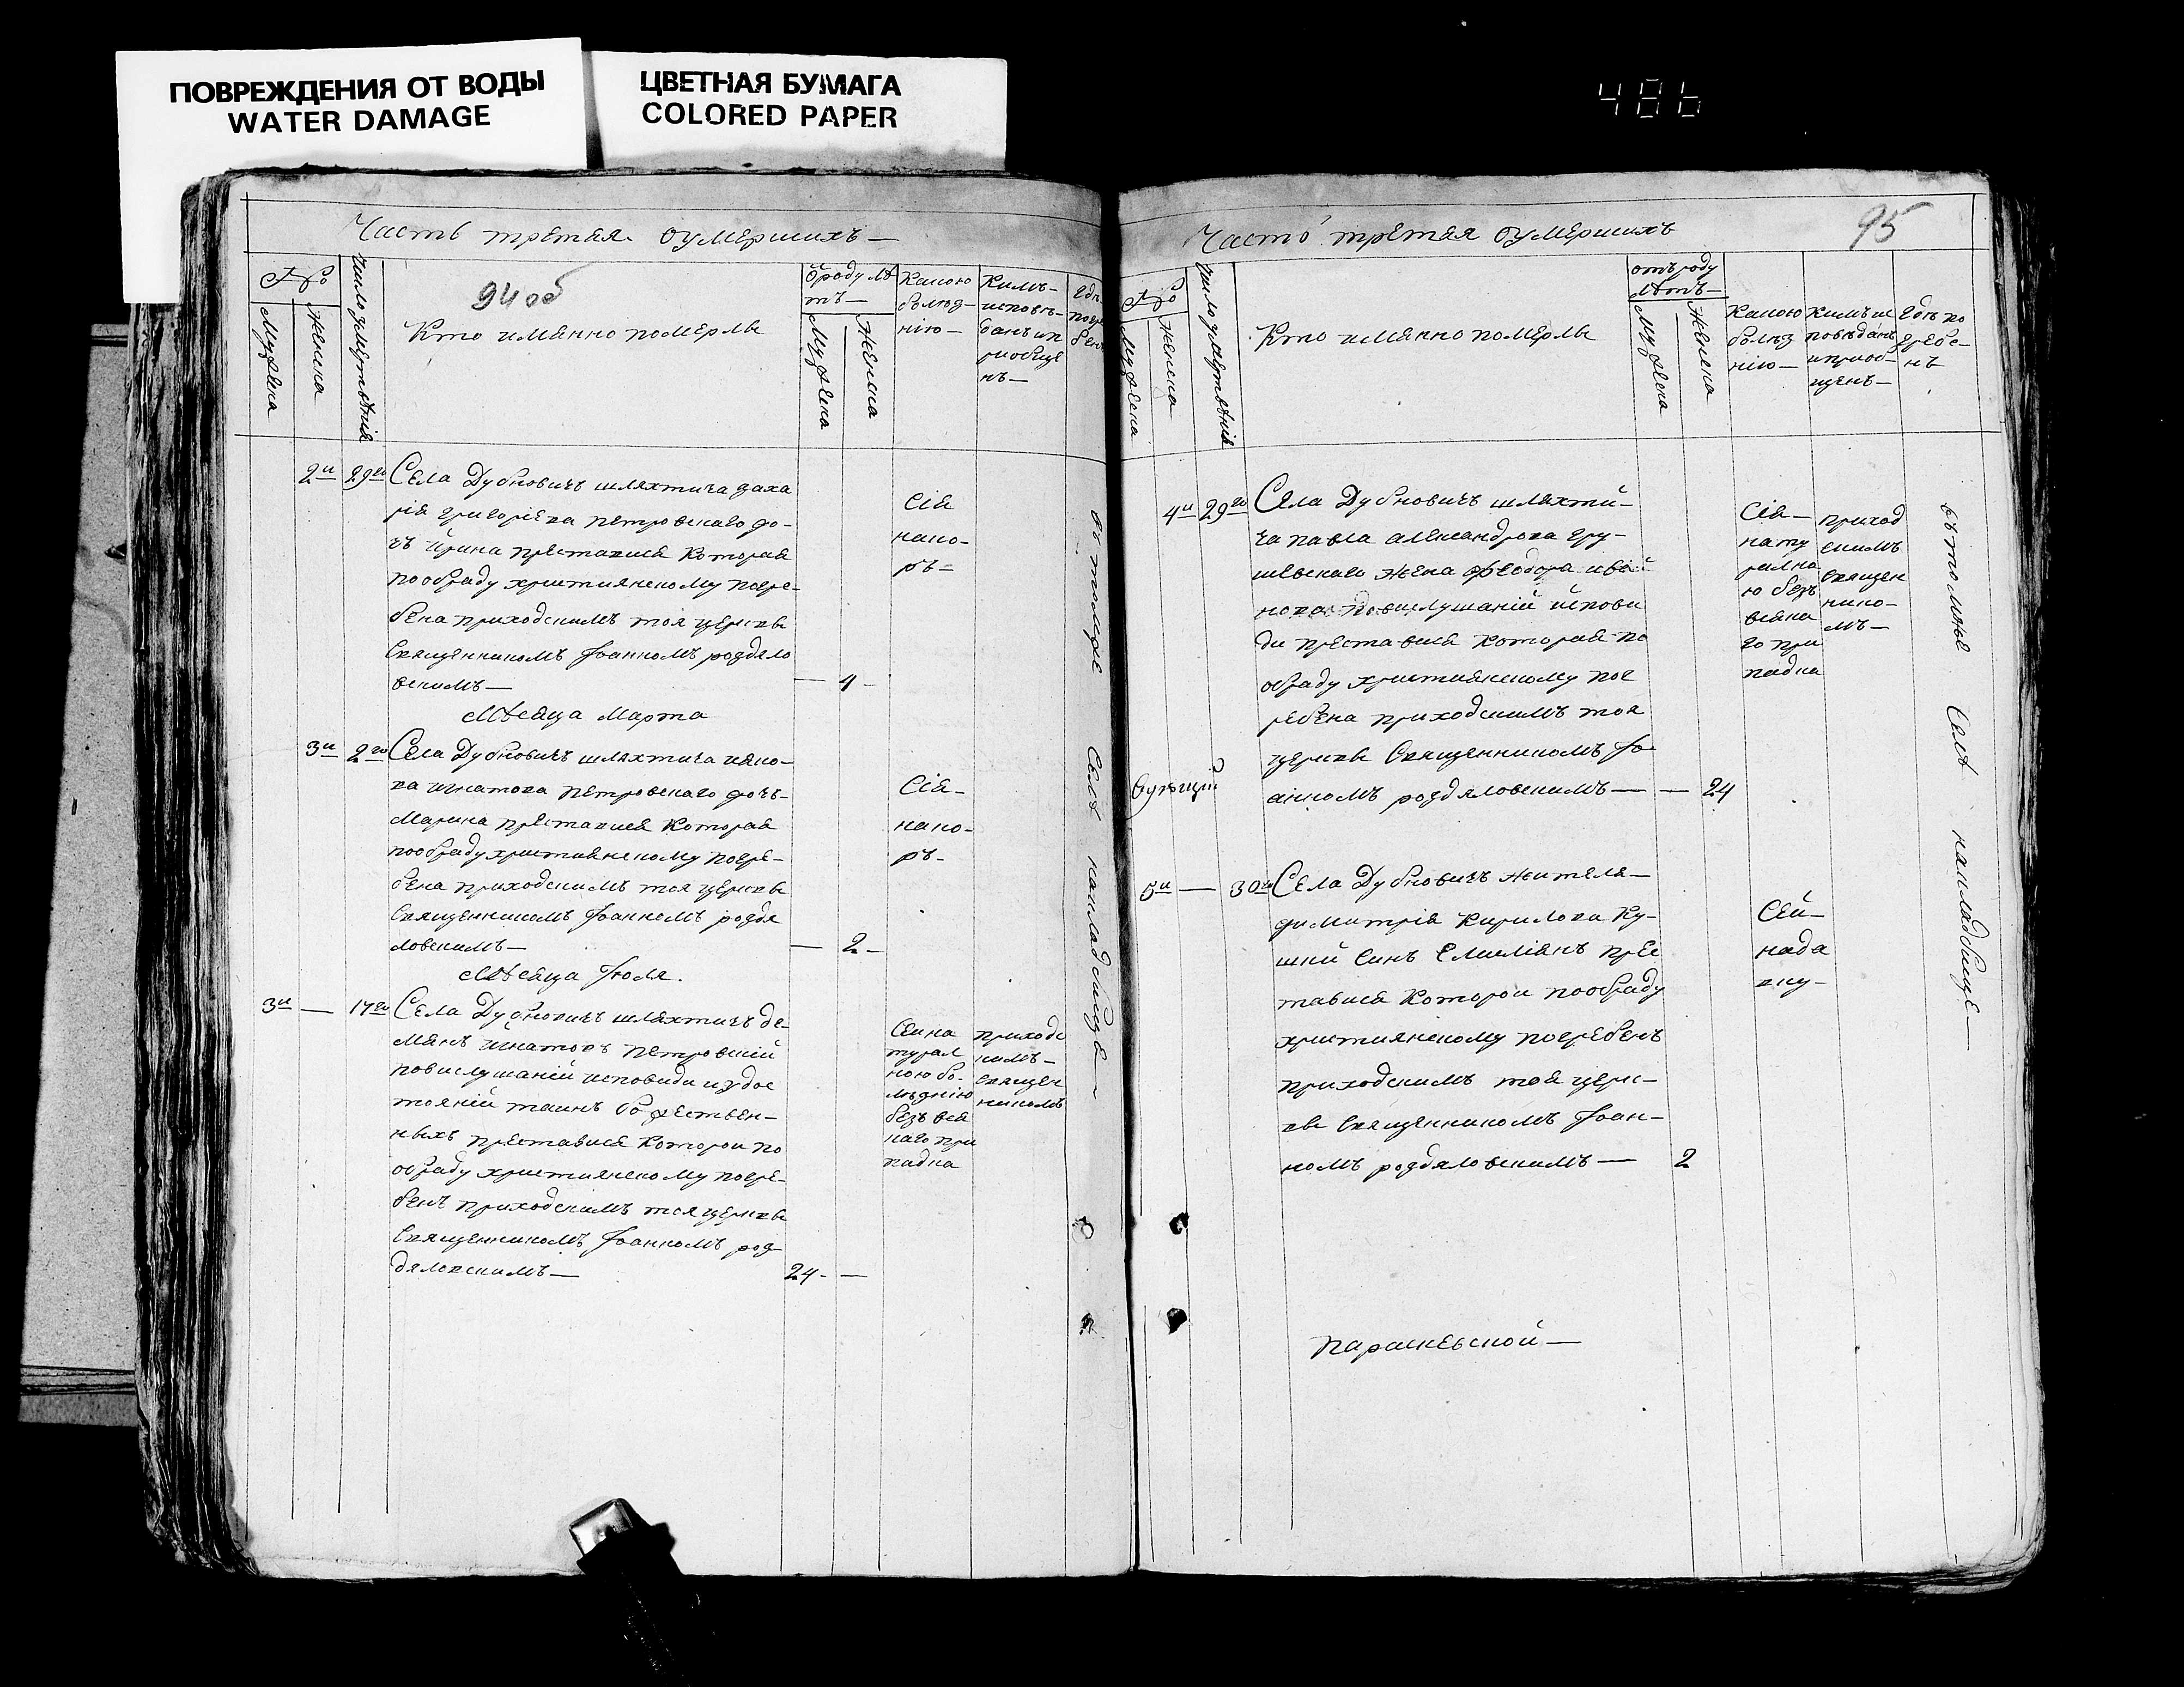 ПОВРЕЖДЕНИЯ ОТ ВОДЫ
WATER DAMAGE
ЦВЕТНАЯ БУМАГА
COLORED PAPER
486
Часть третая оумершихъ —
94 об
№
Мужеска
Женска
Число умертвѣнія
Кто имянно померлы
Ѿ роду лѣ
тъ —
Мужеска
Женска
Какою
болѣз-
нію —
Кимъ-
исповѣ-
данъ и п
риобще
нъ —
Гдѣ
погре
бен
2и 29го Села Дубновичъ шляхтича Заха
рія Григоріева Петровскаго до-
чъ Ирина преставися Которая
по обряду християнскому погре-
бена приходскимъ тоя церкви
Священникомъ Іоанномъ роздяло
вскимъ —
— 4 -
Сія
накo-
ръ -
Мѣсяца Марта
3и 2го Села Дубновичъ шляхтича Яко-
ва Игнатова Петровскаго дочъ-
Марина преставися Которая
по обряду християнскому погре-
бена приходскимъ тоя церкви
Священникомъ Іоанномъ роздя
ловскимъ —
— 2 -
Сія-
нако-
ръ-
Мѣсяца Іюля.
3и — 17го Села Дубновичъ шляхтичъ де-
мянъ Игнатовъ Петровскій
по вислушаній исповиди и удос
тояній таинъ божествен-
ныхъ преставися Которои по
обряду християнскому погре-
бенъ приходскимъ тоя церкви
Священникомъ Іоанномъ роз-
дяловскимъ —
24 - —
Сей на
турал
ною бо-
лѣзнію
безъ вся
каго при
падка
приходс
кимъ —
священ
никомъ
въ томже Селѣ накладбище —
Часть третая оумершихъ
95
№
Мужеска
Женска
Число умертвѣнія
Кто имянно померлы
отъ роду
лѣтъ —
Мужеска
Женска
Какою
болѣз
нію —
Кимъ ис
повѣданъ
и приоб-
щенъ —
Гдѣ по
гребе-
нъ
4и 29го Села Дубновичъ шляхти-
ча Павла Александрова Гру-
шевскаго Жена Феодора
по вислушаній испови
ди преставися Которая по
обряду християнскому пог
ребена приходскимъ тоя
церкви Священникомъ Іо
анномъ роздяловскимъ — — 24
Сія —
нату
рално
ю безъ
всяка
го при
падка
приход
скимъ
Священ
нико-
мъ —
5и — 30го Села Дубновичъ жителя —
димитрія Кирилова Ку-
шни Синъ Емилиянъ прес
тавися Которои по обряду
християнскому погребенъ
приходскимъ тоя церк-
ви Священникомъ Іоан-
номъ роздяловскимъ — 2
Сей —
въ томже Селѣ накладбище —
Параскевской —